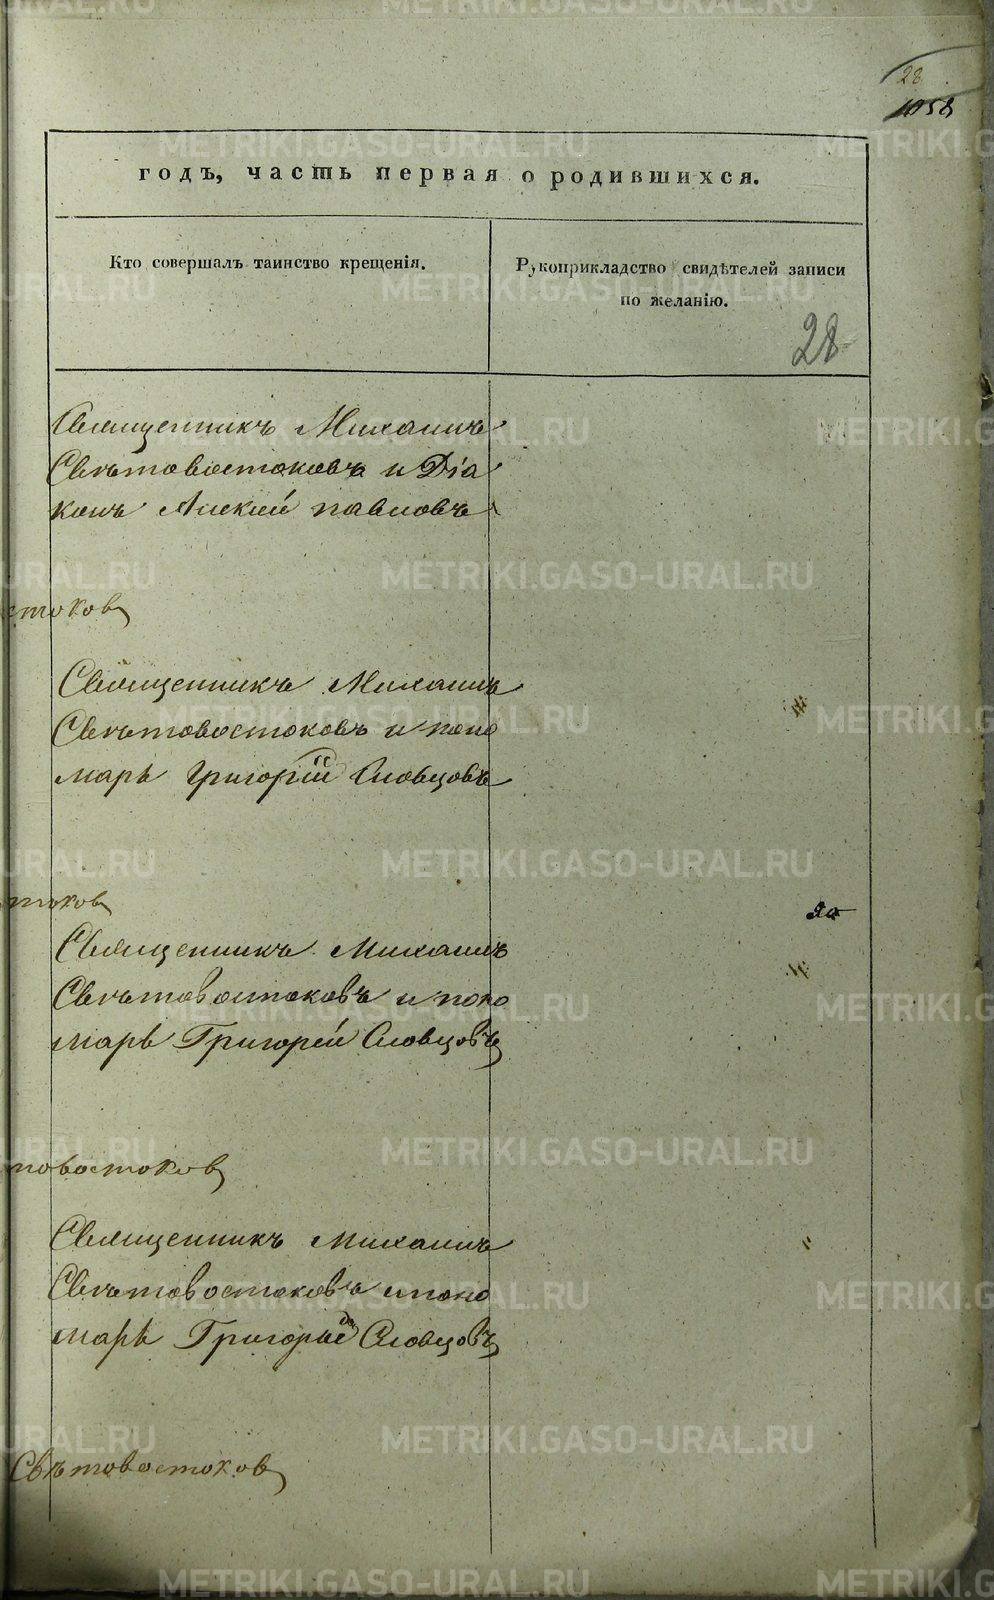 28
1058
годъ, часть первая о родившихся.
Кто совершалъ таинство крещенія.
Рукоприкладство свидѣтелей записи
по желанію.
28
Священникъ Михаилъ
Свѣтовостоковъ и Діа
конъ Алексѣй павловъ
стоков
Священникъ Михаилъ
Свѣтовостоковъ и поно
марь Григорій Словцовъ
токов
Священникъ Михаилъ
Свѣтовостоковъ и поно
марь Григорій Словцовъ
товостоков
Священникъ Михаилъ
Свѣтовостоковъ и поно
марь Григорій Словцовъ
Свѣтовостоков
METRIKI.GASO-URAL.RU